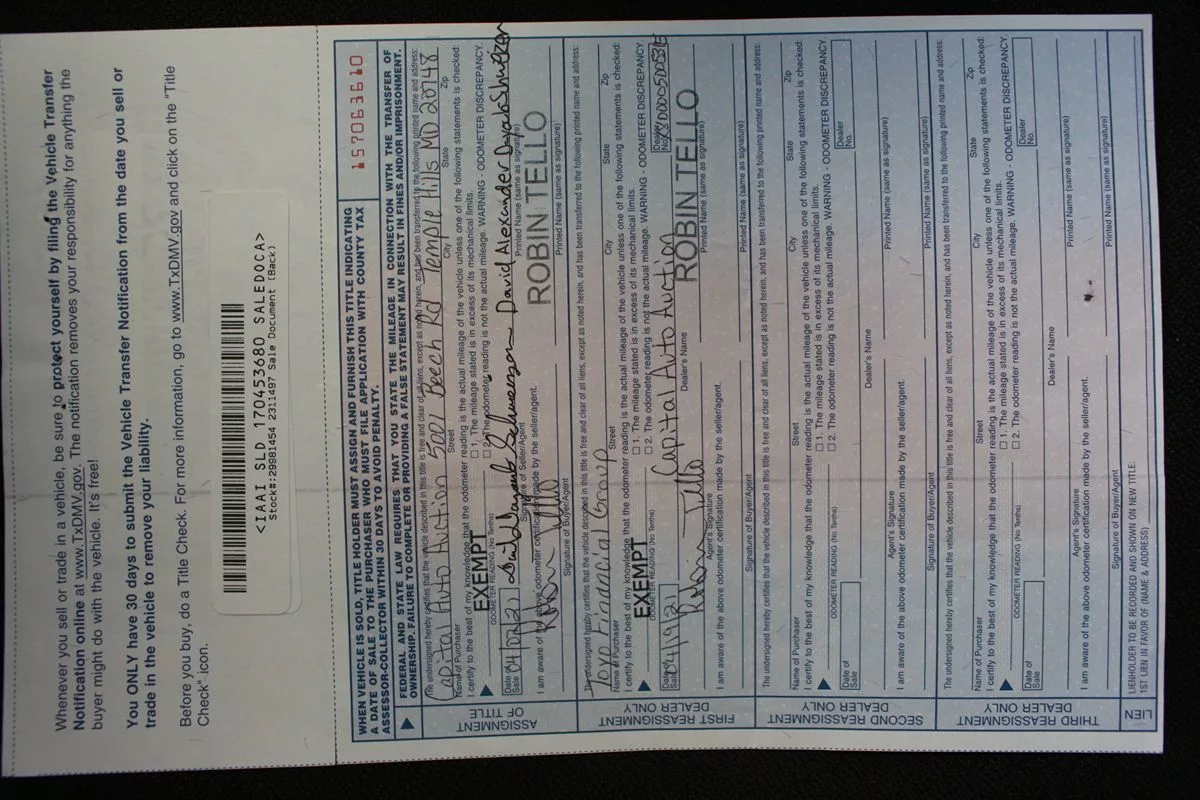 Whenever you sell or trade in a vehicle, be sure to protect yourself by filing the Vehicle Transfer
Notification online at www.TxDMV.gov. The notification removes your responsibility for anything the
buyer might do with the vehicle. It's free!
You ONLY have 30 days to submit the Vehicle Transfer Notification from the date you sell or
trade in the vehicle to remove your liability.
Before you buy, do a Title Check. For more information, go to www.TxDMV.gov and click on the "Title
Check" icon.
<IAAI SLD 17045380 SALEDOCA>
Stock#:29981454 2311497 Sale Document (Back)
WHEN VEHICLE IS SOLD, TITLE HOLDER MUST ASSIGN AND FURNISH THIS TITLE INDICATING
A DATE OF SALE TO THE PURCHASER WHO MUST FILE APPLICATION WITH COUNTY TAX
ASSESSOR-COLLECTOR WITHIN 30 DAYS TO AVOID PENALTY.
157063610
FEDERAL AND STATE LAW REQUIRES THAT YOU STATE THE MILEAGE IN CONNECTION WITH THE TRANSFER OF
OWNERSHIP. FAILURE TO COMPLETE OR PROVIDING A FALSE STATEMENT MAY RESULT IN FINES AND/OR IMPRISONMENT.
ASSIGNMENT OF TITLE
The undersigned hereby certifies that the vehicle described in this title is free and clear of all liens, except as noted herein, and has been transferred to the following printed name and address:
Capital Auto Auction 5001 Beech Rd Temple Hills MD 20748
Name of Purchaser Street City State Zip
I certify to the best of my knowledge that the odometer reading is the actual mileage of the vehicle unless one of the following statements is checked:
☐ 1. The mileage stated is in excess of its mechanical limits.
EXEMPT
☐ 2. The odometer reading is not the actual mileage. WARNING - ODOMETER DISCREPANCY.
ODOMETER READING (No Tenths)
Date of Sale 04/02/21 David Alexander
Signature of Seller/Agent Printed Name (same as signature)
I am aware of the above odometer certification made by the seller/agent.
Robin Tello ROBIN TELLO
Signature of Buyer/Agent Printed Name (same as signature)
FIRST REASSIGNMENT DEALER ONLY
The undersigned hereby certifies that the vehicle described in this title is free and clear of all liens, except as noted herein, and has been transferred to the following printed name and address:
Financial Group
Name of Purchaser Street City State Zip
I certify to the best of my knowledge that the odometer reading is the actual mileage of the vehicle unless one of the following statements is checked:
☐ 1. The mileage stated is in excess of its mechanical limits.
EXEMPT
☐ 2. The odometer reading is not the actual mileage. WARNING - ODOMETER DISCREPANCY.
ODOMETER READING (No Tenths)
Date of Sale 04/19/21 Capital Auto Auction Dealer No.
Dealer's Name
Robin Tello ROBIN TELLO
Agent's Signature Printed Name (same as signature)
I am aware of the above odometer certification made by the seller/agent.
Signature of Buyer/Agent Printed Name (same as signature)
SECOND REASSIGNMENT DEALER ONLY
The undersigned hereby certifies that the vehicle described in this title is free and clear of all liens, except as noted herein, and has been transferred to the following printed name and address:
Name of Purchaser Street City State Zip
I certify to the best of my knowledge that the odometer reading is the actual mileage of the vehicle unless one of the following statements is checked:
☐ 1. The mileage stated is in excess of its mechanical limits.
☐ 2. The odometer reading is not the actual mileage. WARNING - ODOMETER DISCREPANCY.
ODOMETER READING (No Tenths)
Date of Sale Dealer's Name Dealer No.
Agent's Signature Printed Name (same as signature)
I am aware of the above odometer certification made by the seller/agent.
Signature of Buyer/Agent Printed Name (same as signature)
THIRD REASSIGNMENT DEALER ONLY
The undersigned hereby certifies that the vehicle described in this title is free and clear of all liens, except as noted herein, and has been transferred to the following printed name and address:
Name of Purchaser Street City State Zip
I certify to the best of my knowledge that the odometer reading is the actual mileage of the vehicle unless one of the following statements is checked:
☐ 1. The mileage stated is in excess of its mechanical limits.
☐ 2. The odometer reading is not the actual mileage. WARNING - ODOMETER DISCREPANCY.
ODOMETER READING (No Tenths)
Date of Sale Dealer's Name Dealer No.
Agent's Signature Printed Name (same as signature)
I am aware of the above odometer certification made by the seller/agent.
Signature of Buyer/Agent Printed Name (same as signature)
LIEN
LIENHOLDER TO BE RECORDED AND SHOWN ON NEW TITLE:
1ST LIEN IN FAVOR OF (NAME & ADDRESS)